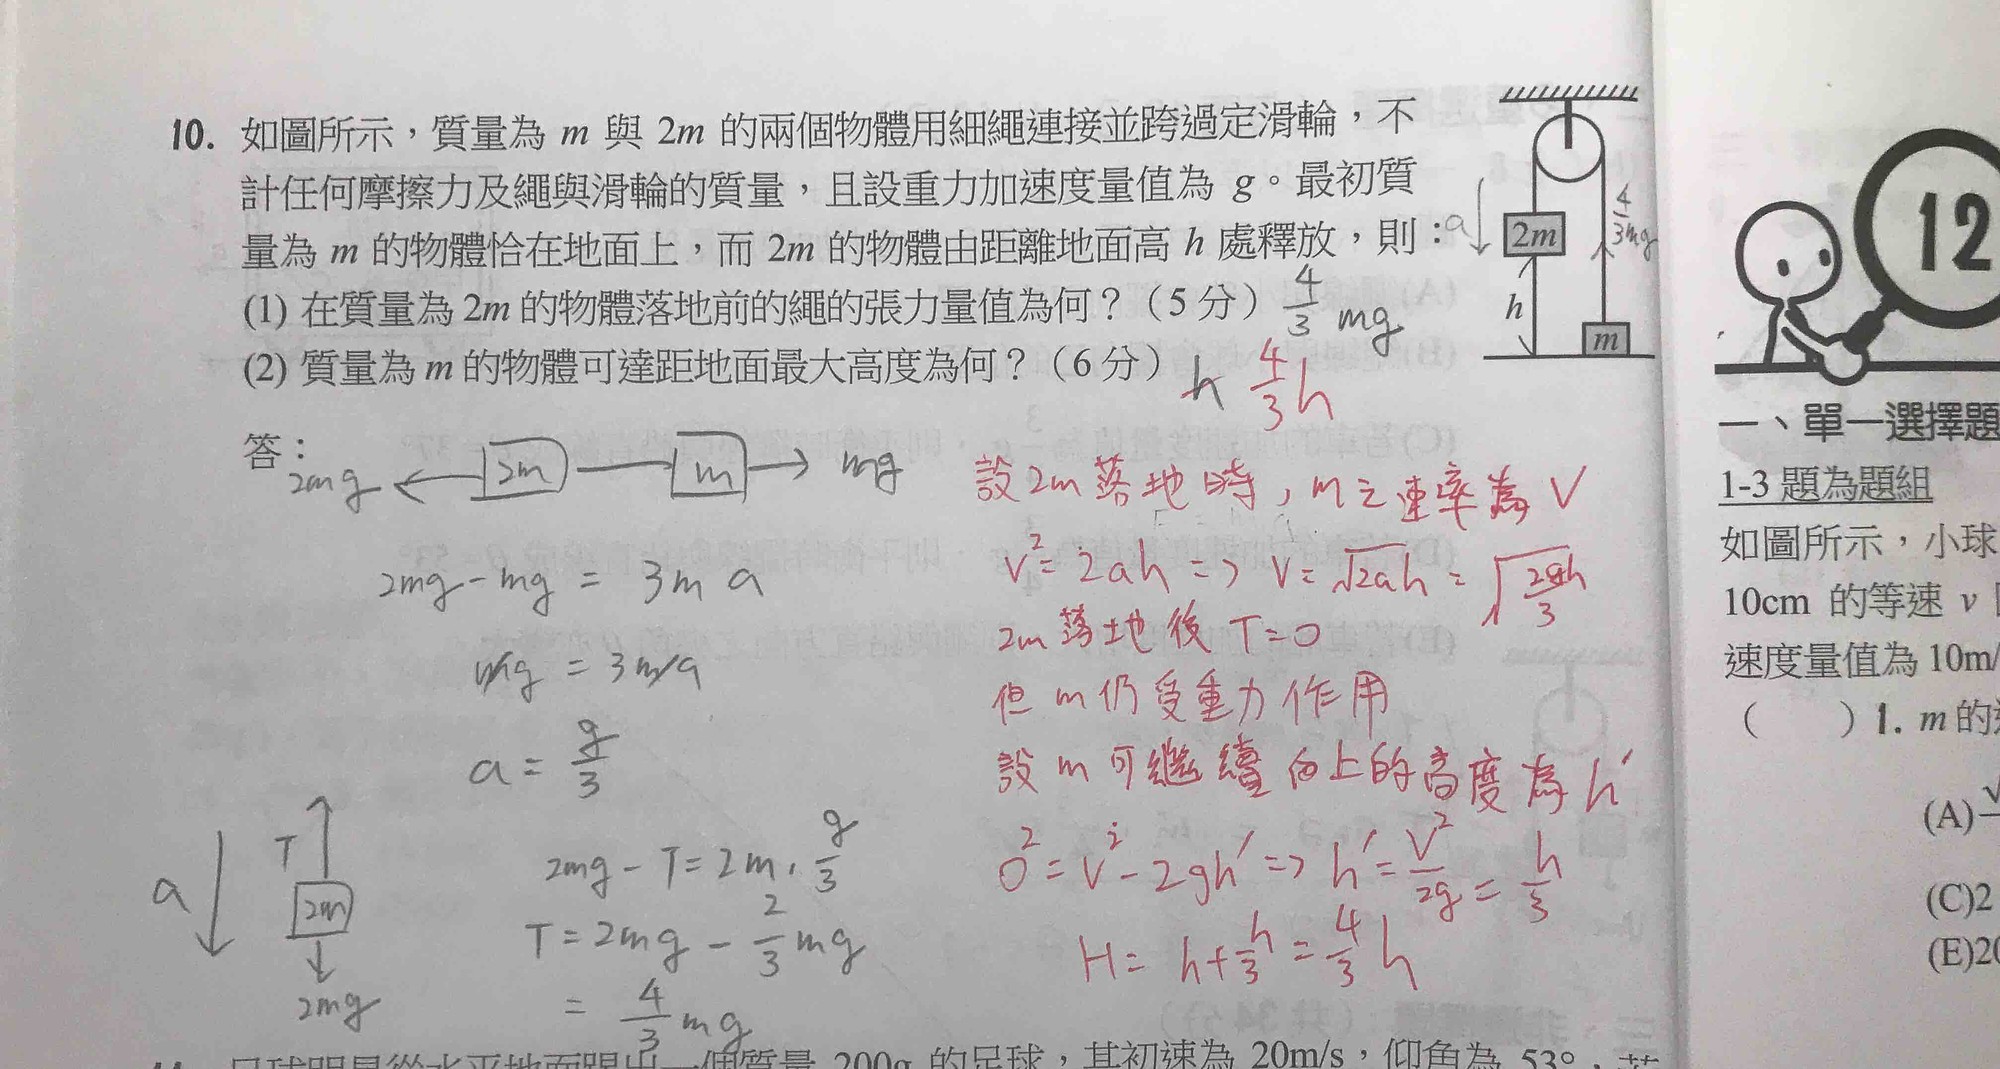 10. 如圖所示，質量為 m 與 2m 的兩個物體用細繩連接並跨過定滑輪，不
計任何摩擦力及繩與滑輪的質量，且設重力加速度量值為 g。最初質
量為 m 的物體恰在地面上，而 2m 的物體由距離地面高 h 處釋放，則：
(1) 在質量為 2m 的物體落地前的繩的張力量值為何？（5 分）4/3 mg
(2) 質量為 m 的物體可達距地面最大高度為何？（6 分）h 4/3 h
a
2m
4/3 mg
h
m
答：
2mg 2m m mg
2mg - mg = 3m a
mg = 3m a
a = g/3
a
T
2m
2mg
2mg - T = 2m · g/3
T = 2mg - 2/3 mg
= 4/3 mg
設2m落地時，m之速率為V
V² = 2ah => V = √2ah = √2gh/3
2m落地後 T=0
但m仍受重力作用
設m可繼續向上的高度為h'
0² = V² - 2gh' => h' = V²/2g = h/3
H = h + h/3 = 4/3 h
200g 的足球，其初速為 20m/s，仰角為 53°，
12
一、單一選擇題
1-3 題為題組
如圖所示，小球
10cm 的等速 v
速度量值為 10m/
（ ）1. m 的
(A)
(C)2
(E)20